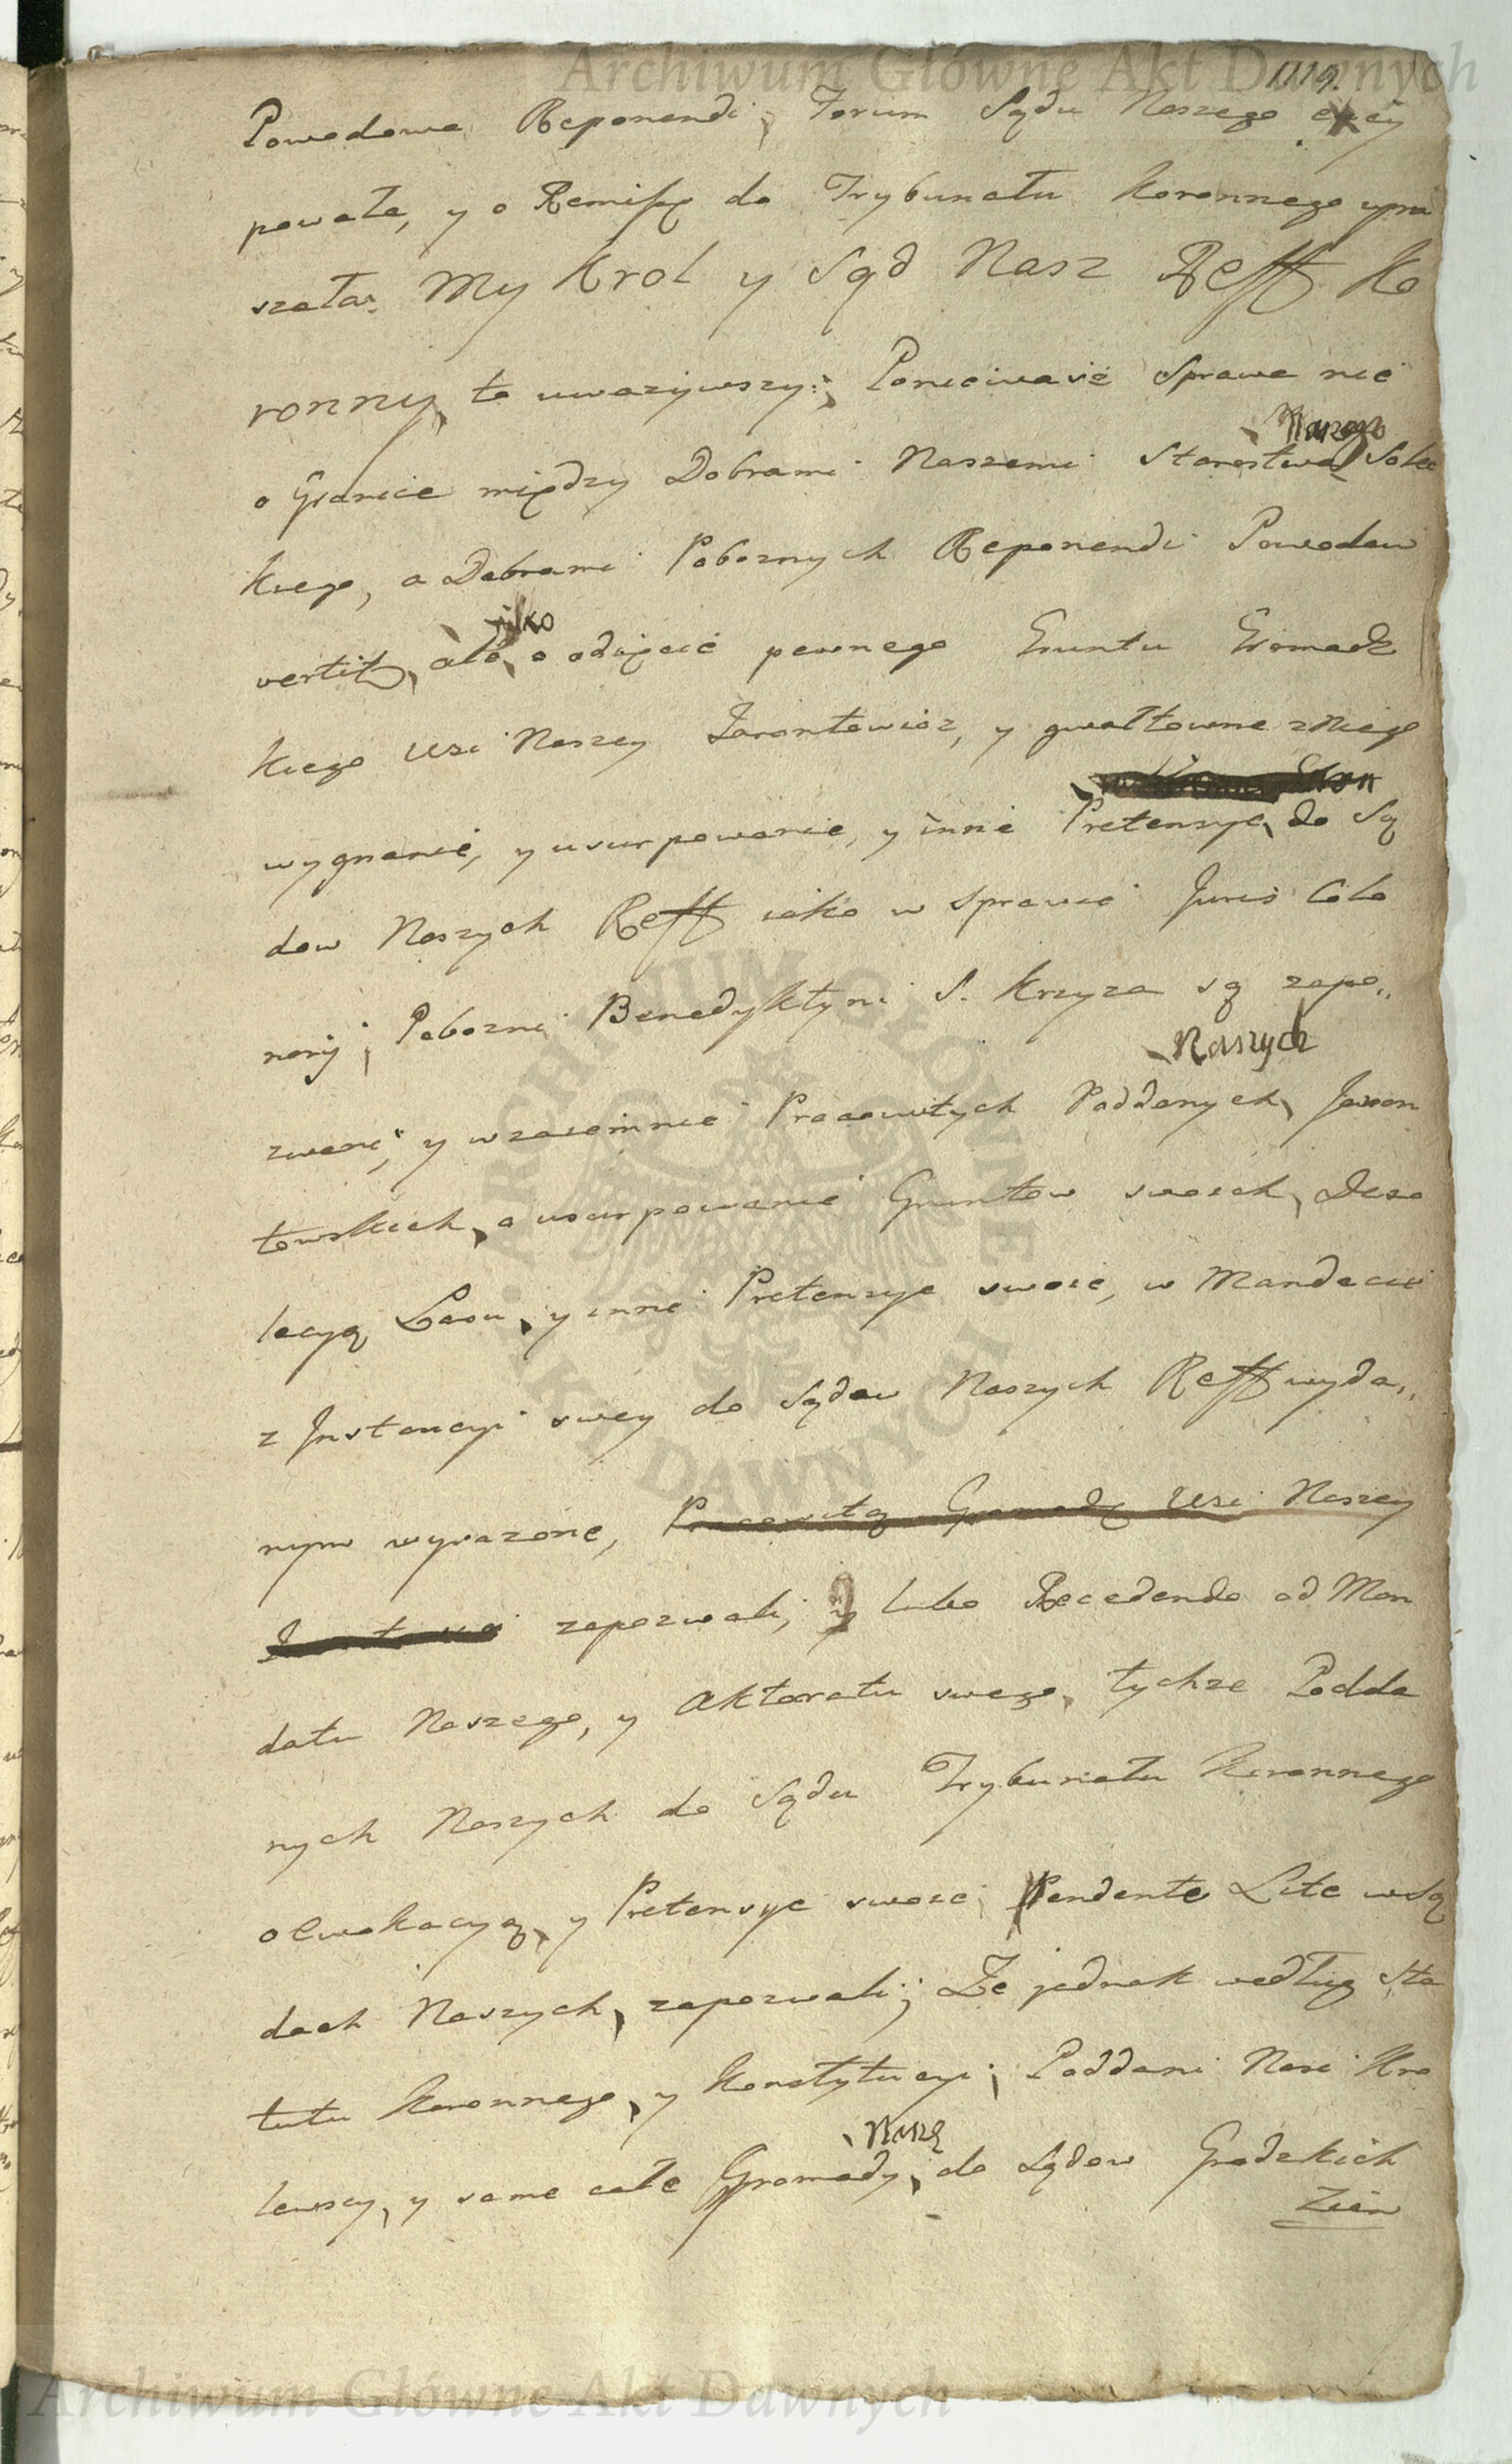 Archiwum Główne Akt Dawnych
1119.
Powodowa Reponendi, Forum Sądu Naszego excy
powała, y o Remissę do Trybunału Koronnego upra
szała. My Krol y Sąd Nasz Reff Ko
ronny, to uwazywszy; Poniewasz Sprawa nie
Naszego
o Granice między Dobrami Naszemi Starostwa Solec
kiego, a Dobrami Poboznych Reponendi Powodow
tylko
vertit, ale o odięcie pewnego Gruntu Gromadz
kiego Wsi Naszey Jarontowice, y gwałtowne z niego
wygnanie, y usurpowanie, y inne Pretensye, do Są
dow Naszych Reff iako w Sprawie Juris Colo
narij; Pobozni Benedyktyni S. Krzyza są zapo,,
Naszych
zwani; y wzaiemnie Pracowitych Poddanych, Jaron
towskich, o usurpowanie Gruntow swoich, Deso
lacyą Lasu, y inne Pretensye swoie, w Mandacie
z Jnstancyi swey do Sądow Naszych Reff wyda,,
nym wyrazone, Pracowitą Gromadę Wsi Naszey
zapozwali; y lubo Recedendo od Man
datu Naszego, y Aktoratu swego, tychze Podda
nych Naszych do Sądu Trybunału Koronnego
o Ewokacyą, y Pretensye swoie, Pendente Lite w Są
dach Naszych, zapozwali; Ze jednak według Sta
tutu Koronnego, y Konstytucyi; Poddani Nasi Kro
Naszę
lewscy, y same całe Gromady, do Sądow Grodzkich
Ziem
ARCHIWUM GŁÓWNE AKT DAWNYCH
Archiwum Główne Akt Dawnych